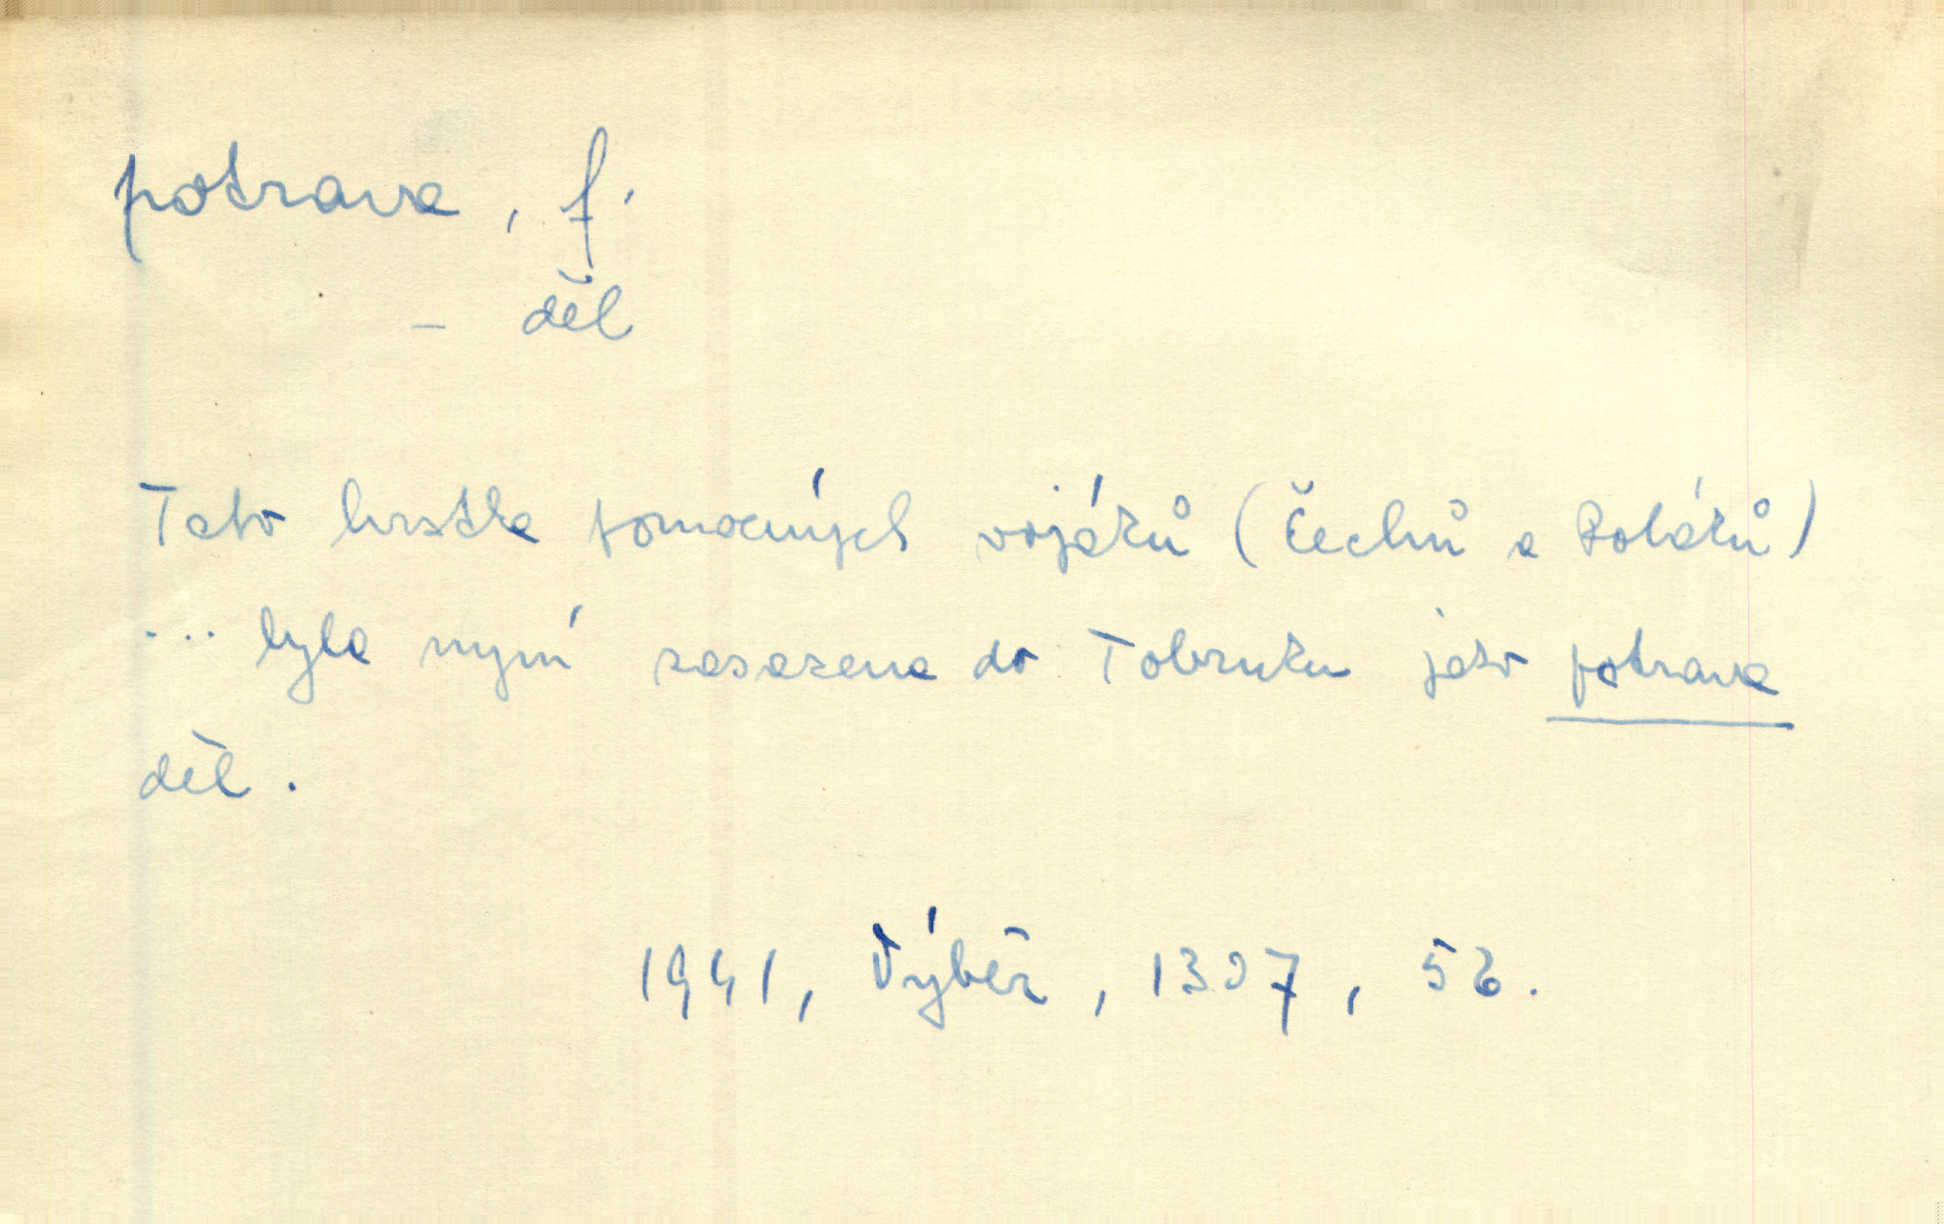 potrava, f.
– děl
Tato hrstka pomocných vojáků (Čechů a Poláků)
... byla nyní zasazena do Tobruku jako potrava
děl.
1941, Výběr, 1307, 56.